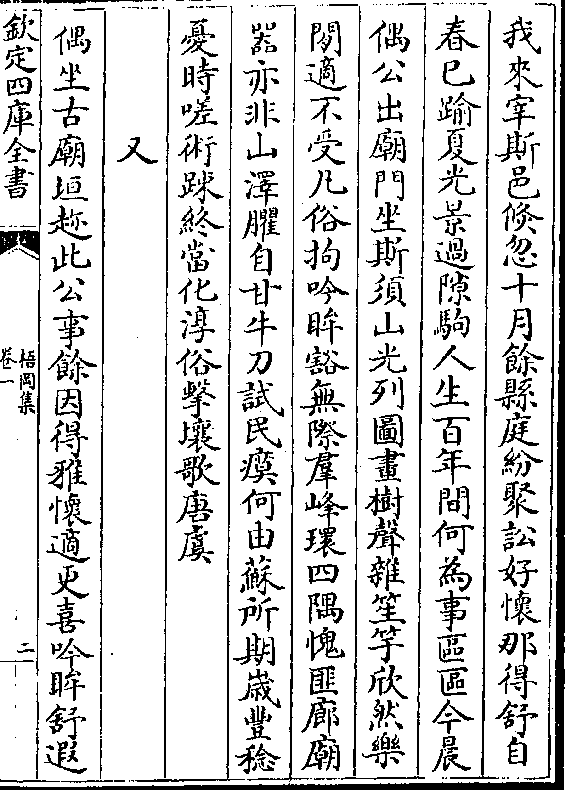 我來宰斯邑倐忽十月餘縣庭紛聚訟好懷那得舒自
春已踰夏光景過隙駒人生百年間何為事區區今晨
偶公出廟門坐斯須山光列圖畫樹聲雜笙竽欣然樂
閒適不受凡俗拘吟眸豁無際羣峰環四隅愧匪廊廟
器亦非山澤臞自甘牛刀試民瘼何由蘇所期歲豐稔
憂時嗟術踈終當化淳俗擊壤歌唐虞
又
偶坐古廟垣趂此公事餘因得雅懷適更喜吟眸舒遐
欽定四庫全書
梧岡集
卷一
二